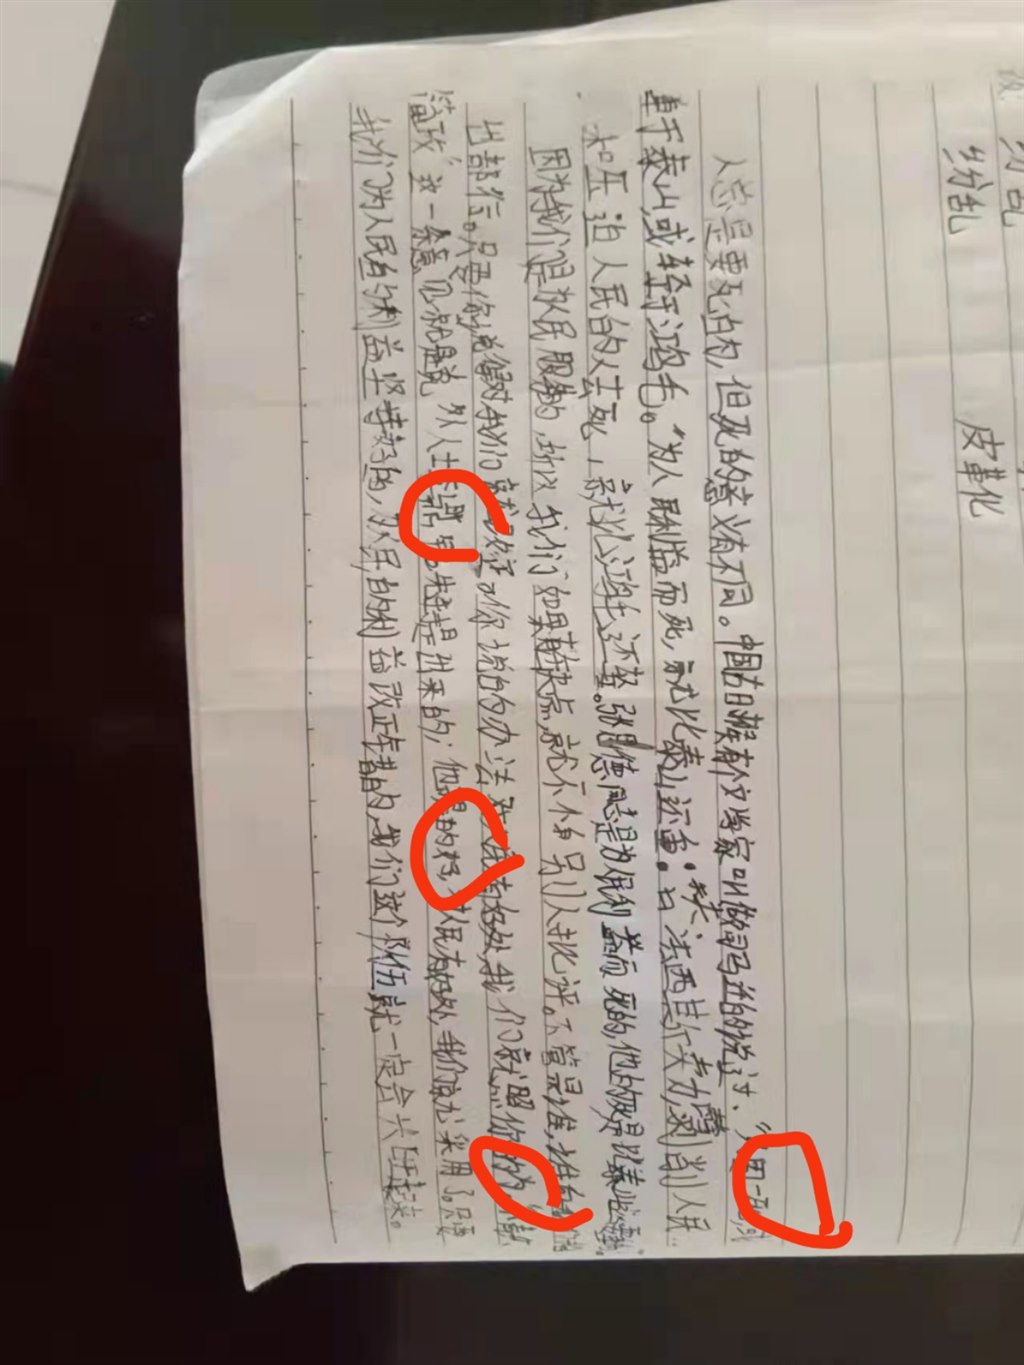 纷乱
纷乱
皮革化
人总是要死的，但死的意义有不同。中国古时候有个文学家叫做司马迁的说过、“人固一死，或
重于泰山，或轻于鸿毛。”为人民利益而死，就比泰山还重：替法西斯卖力，剥削人民
和压迫人民的人去死，就比鸿毛还轻。张思德同志是为人民利益而死的，他的死是比泰山还要重的。
因为我们是为人民服务的，所以，我们如果有缺点，就不怕别人批评。不管是谁，谁向我们指
出都行。只要你说得对，我们就改正。你说的办法对人民有好处，我们就照你的办。“精兵
简政”这一条意见，就是党外人士李鼎铭先生提出来的；他提的好，对人民有好处，我们就采用了。只要
我们为人民的利益坚持好的，为人民的利益改正错的，我们这个队伍就一定会兴旺起来。